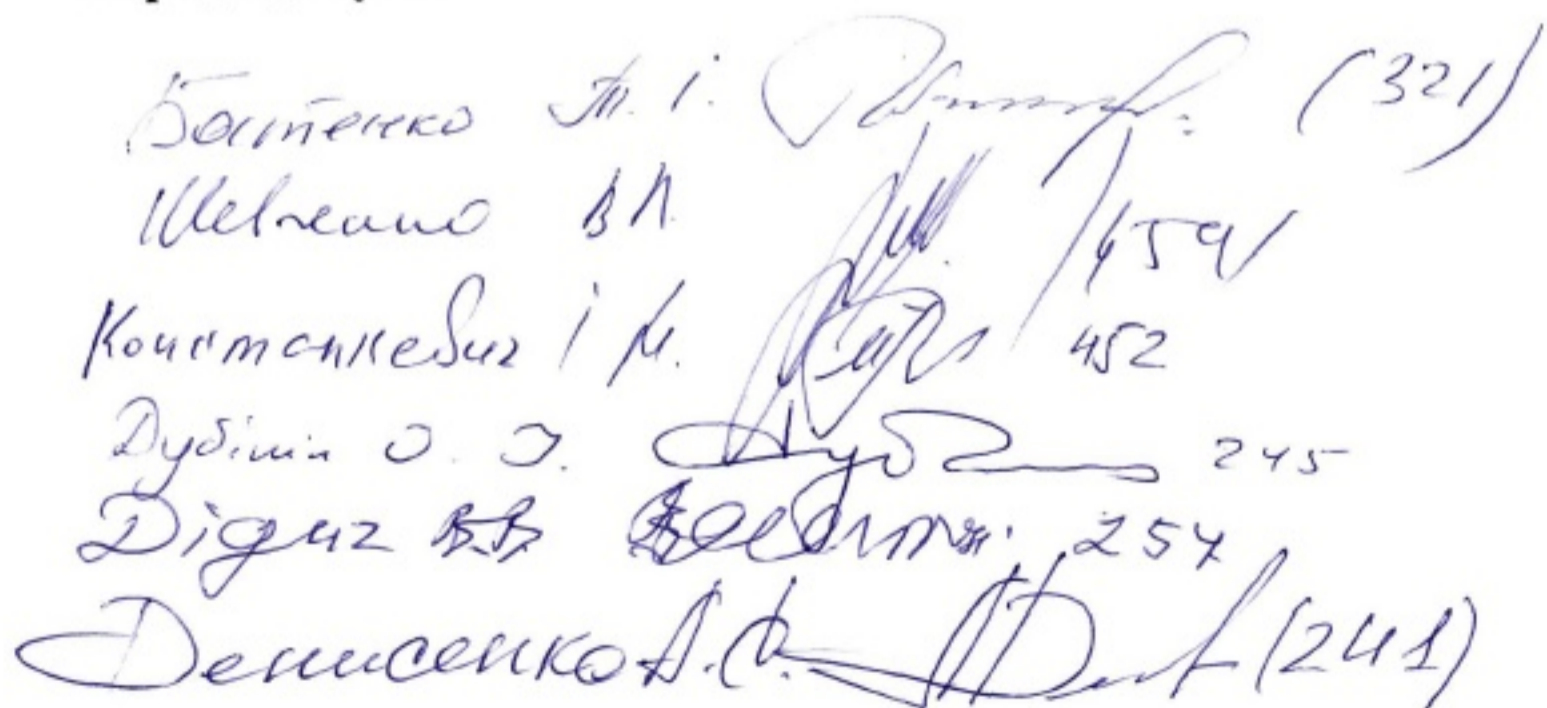 Бантенко Т. І. (321)
Шевченко В Л.
Констанкевич І М. 452
Дубінін О. І. 245
Дідич В.В. 254
Денисенко А.С. (241)